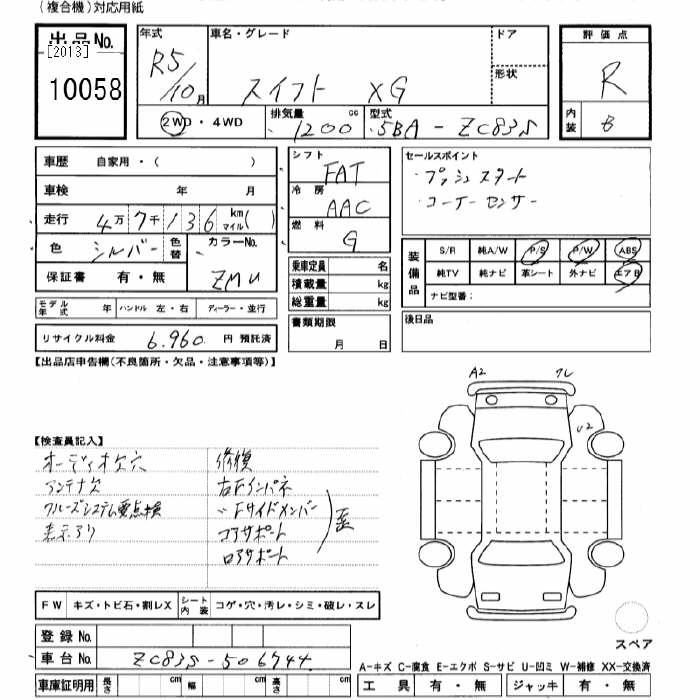 (複合機)対応用紙
出品No.
[2013]
10058
年式
R5/10月
車名・グレード
スイフト XG
ドア
形状
評価点
R
内装
B
2WD・4WD
排気量 cc
1200
型式
5BA-ZC83S
車歴 自家用・( )
車検 年 月
走行 4万7千136 km マイル( )
色 シルバー 色替
カラーNo.
ZMU
保証書 有・無
モデル年式 年 ハンドル 左・右 ディーラー・並行
リサイクル料金 6,960 円 預託済
シフト
FAT
冷房
AAC
燃料
G
乗車定員 名
積載量 kg
総重量 kg
書類期限
月 日
セールスポイント
・プッシュスタート
・コーナーセンサー
装備品
S/R 純A/W P/S P/W ABS
純TV 純ナビ 革シート 外ナビ エアB
ナビ型番:
後日品
【出品店申告欄(不良箇所・欠品・注意事項等)】
【検査員記入】
オーディオ欠穴
アンテナ欠
クルーズシステム要点検
表示アリ
修復
右Fインパネ
〃Fサイドメンバー
コアサポート
ロアサポート
A2
ワレ
U2
FW キズ・トビ石・割レX
シート内装 コゲ・穴・汚レ・シミ・破レ・スレ
登録No.
車台No. ZC83S-506744
車庫証明用 長さ cm 幅 cm 高さ cm
スペア
A-キズ C-腐食 E-エクボ S-サビ U-凹ミ W-補修 XX-交換済
工具 有・無 ジャッキ 有・無